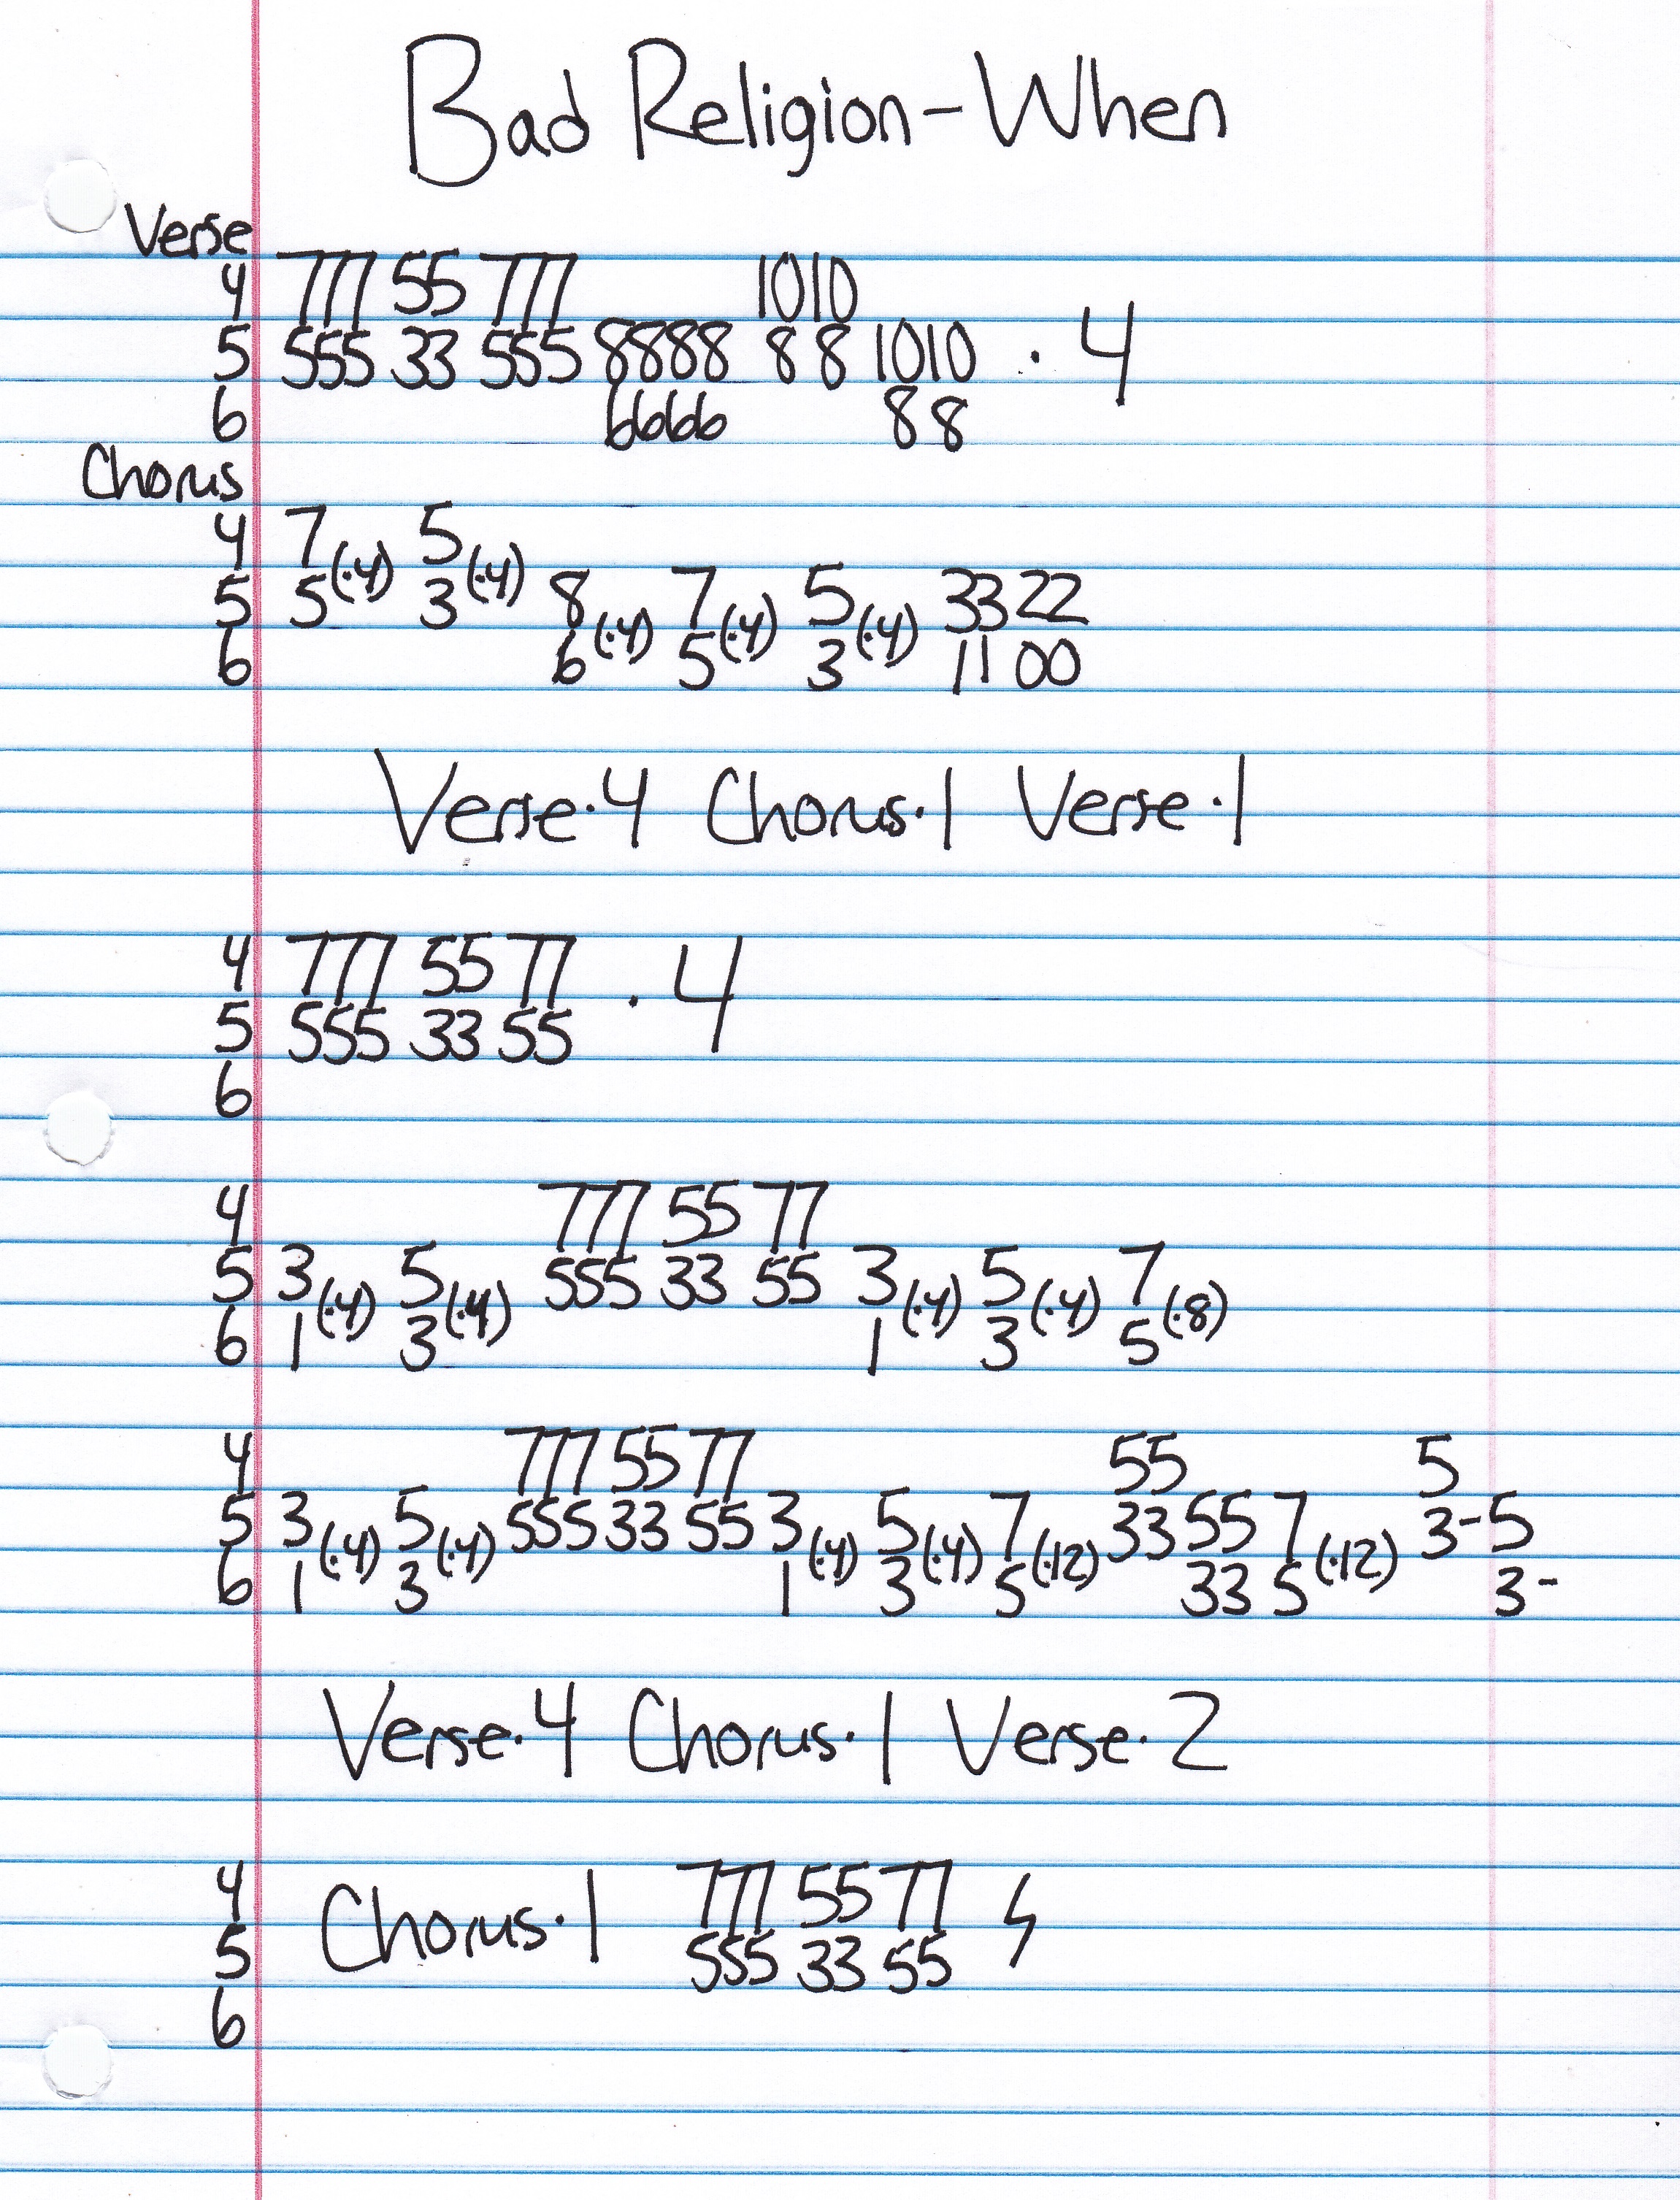 Bad Religion - When
Verse
4 777 55 777 1010
5 555 33 555 8888 8 8 1010 · 4
6 6666 88
Chorus
4 7 5
5 5(·4) 3(·4) 8 7 5 33 22
6 6(·4) 5(·4) 3(·4) 11 00
Verse·4 Chorus·1 Verse·1
4 777 55 77
5 555 33 55 · 4
6
4 777 55 77
5 3 5 555 33 55 3 5 7
6 1(·4) 3(·4) 1(·4) 3(·4) 5(·8)
4 777 55 77 55 5
5 3 5 555 33 55 3 5 7 33 55 7 3-5
6 1(·4) 3(·4) 1(·4) 3(·4) 5(·12) 33 5(·12) 3-
Verse·4 Chorus·1 Verse·2
4 Chorus·1 777 55 77
5 555 33 55
6